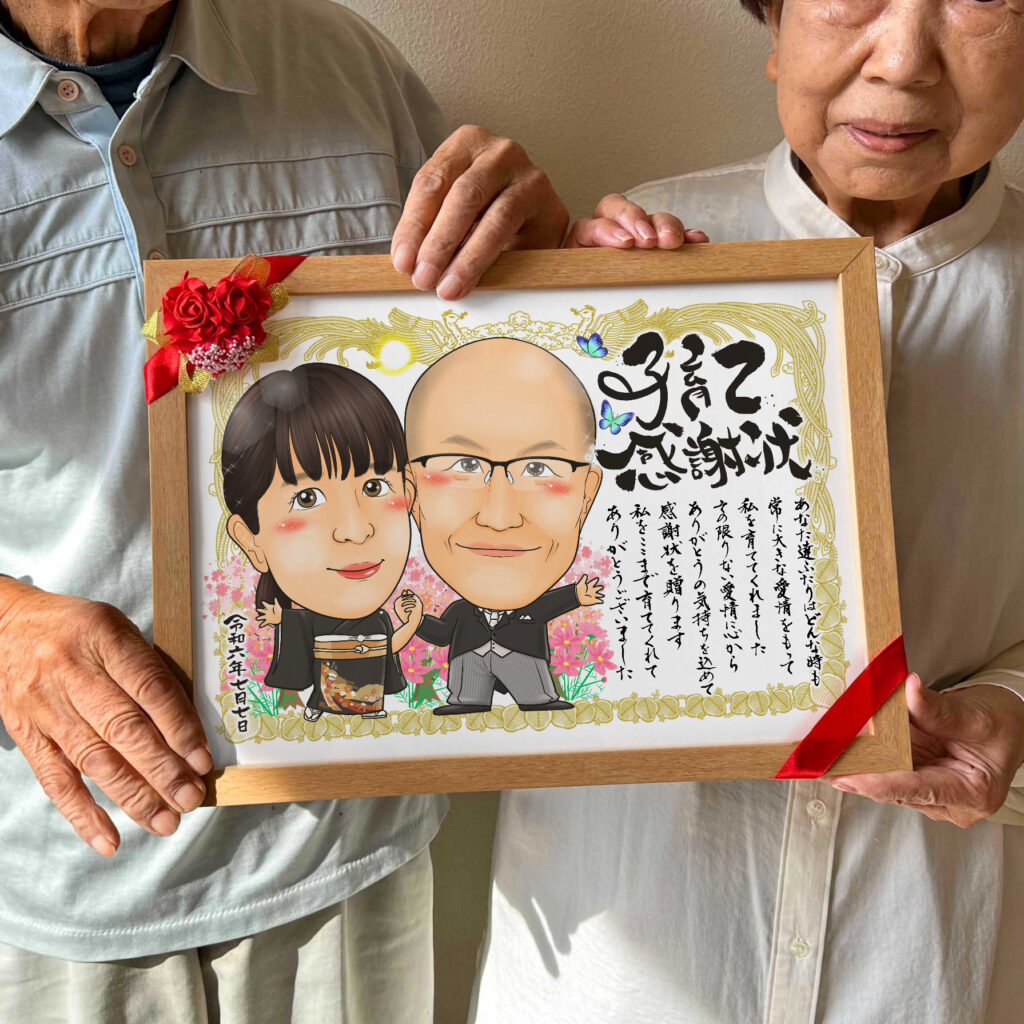 子育て
感謝状
あなた達ふたりはどんな時も
常に大きな愛情をもって
私を育ててくれました
その限りない愛情に心から
ありがとうの気持ちを込めて
感謝状を贈ります
私をここまで育ててくれて
ありがとうございました
令和六年七月七日